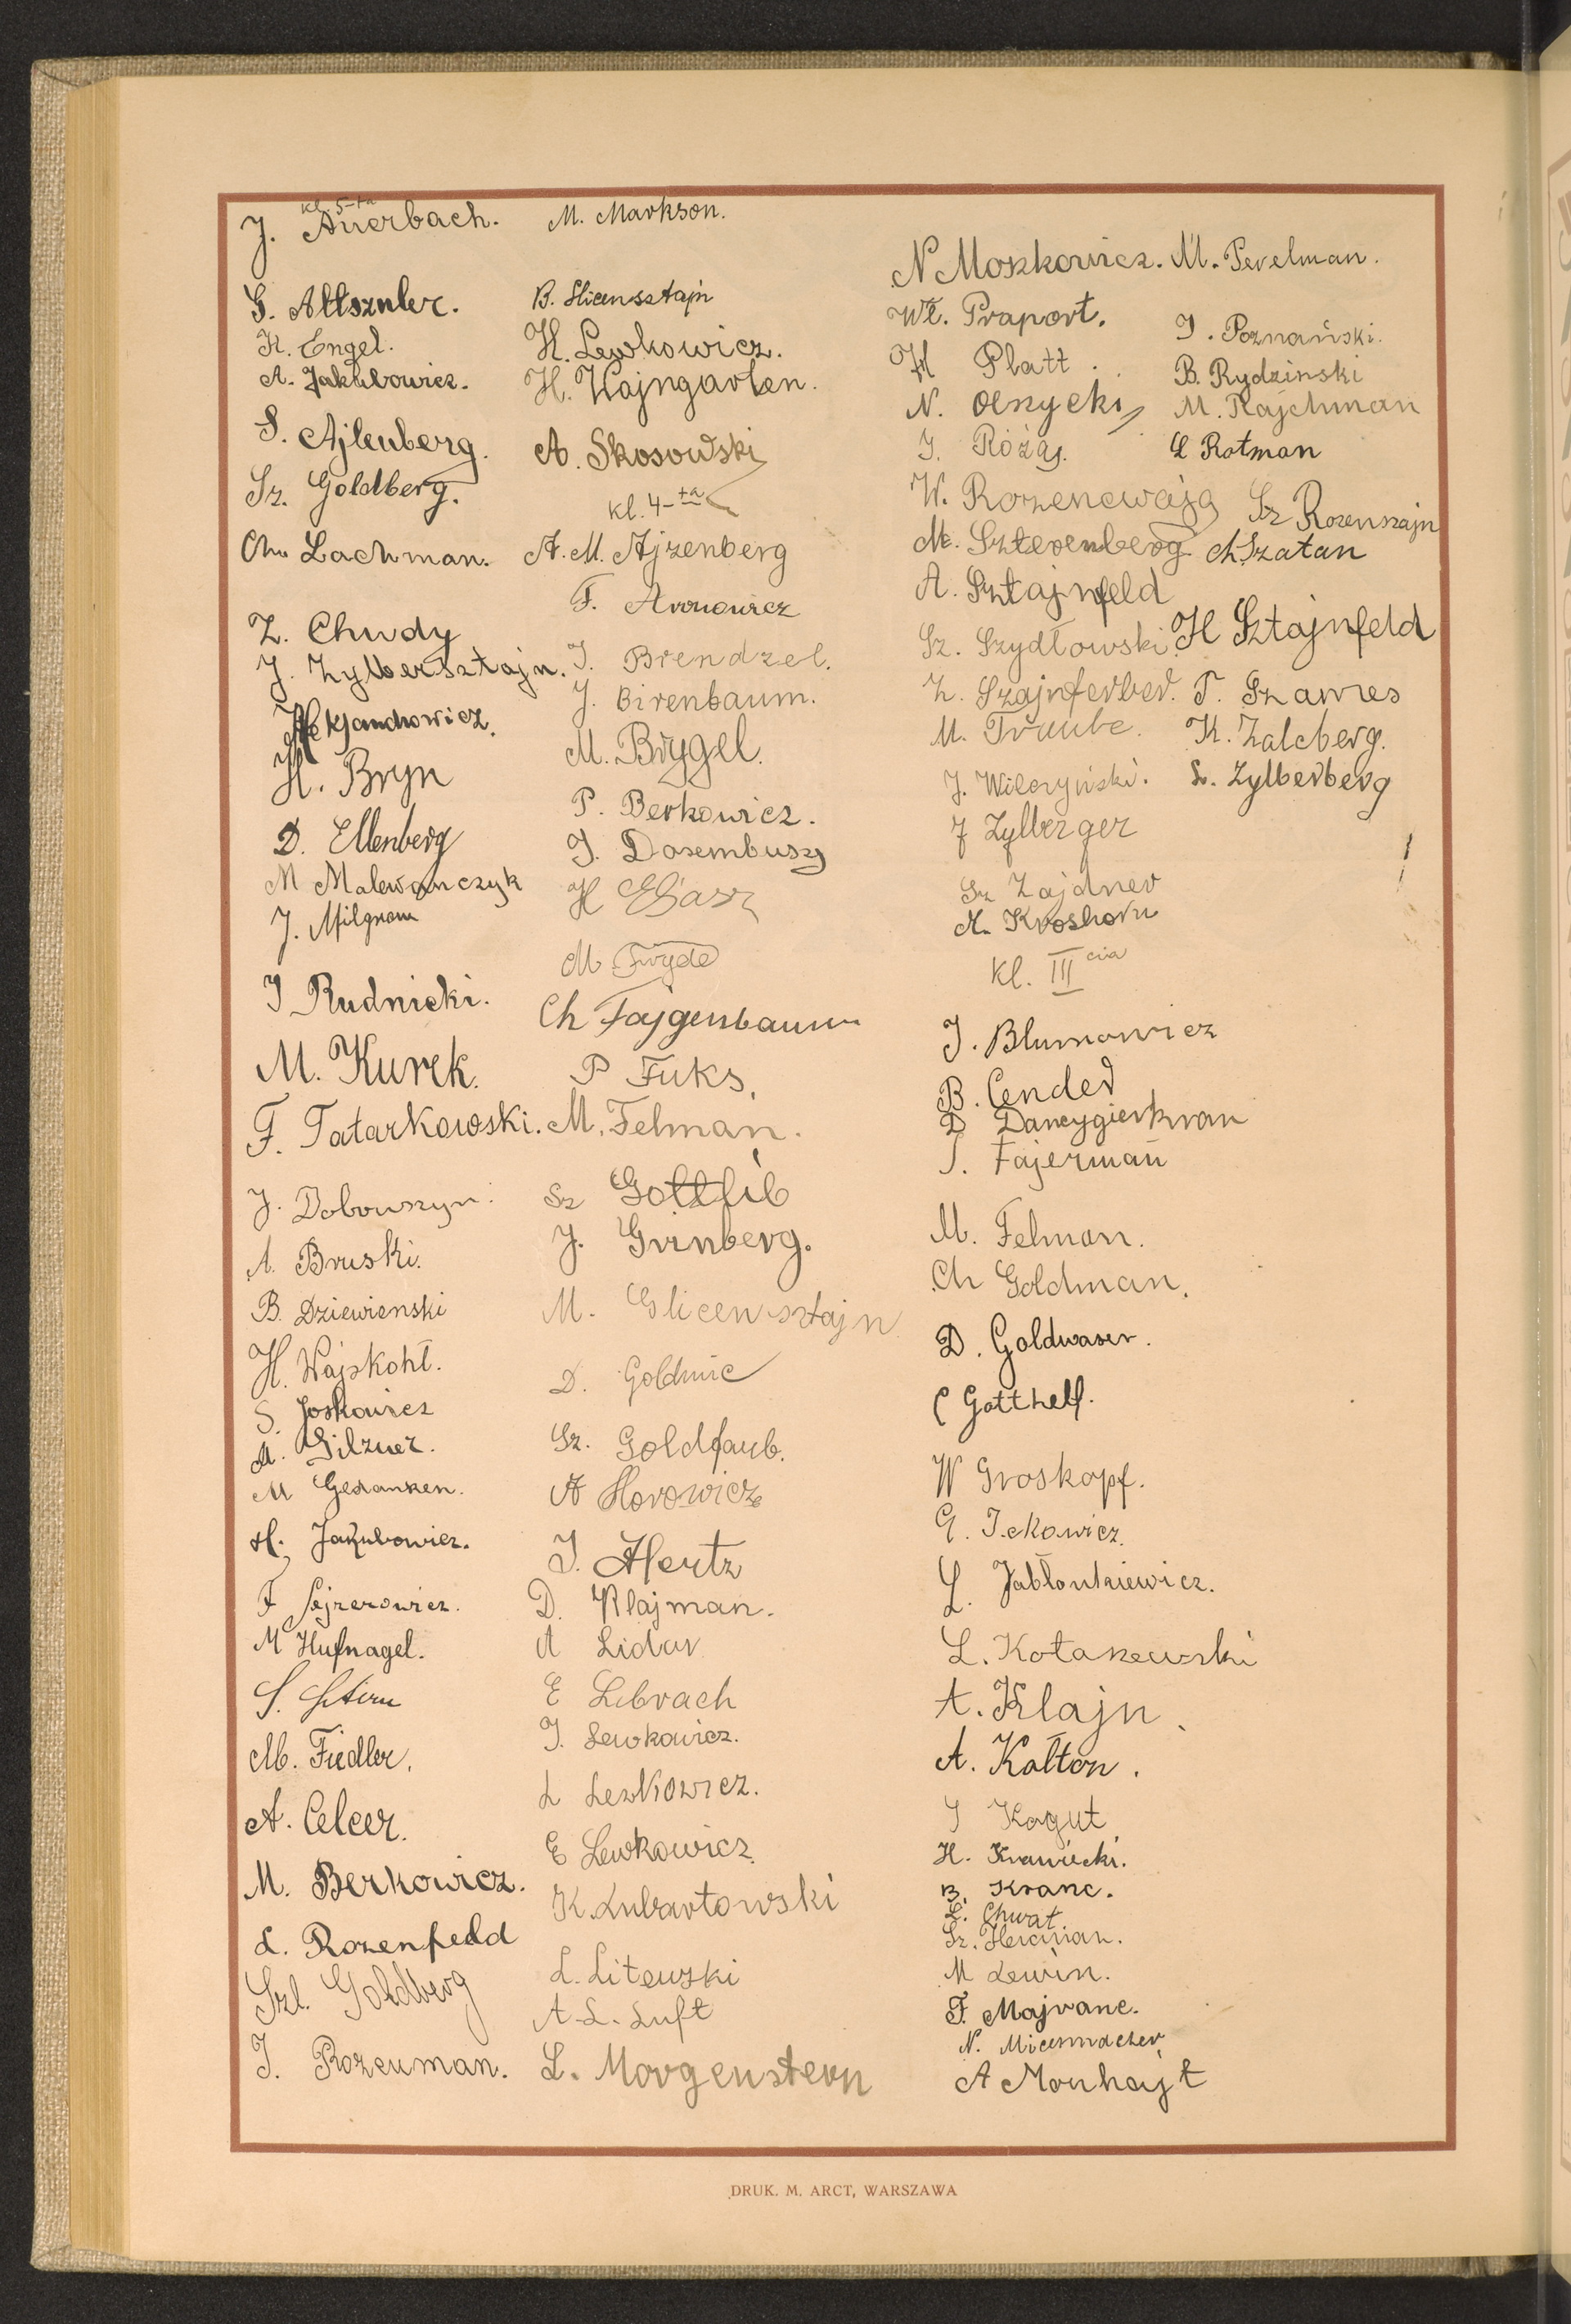 kl. 5-ta
J. Auerbach.
G. Altszuler.
K. Engel.
A. Jakubowicz.
S. Ajlenberg.
Sz. Goldberg.
Ch. Lachman.
Z. Chudy
J. Zylbersztajn.
H. Bryn
D. Ellenberg
M Malewanczyk
J. Milgrom
I Rudnicki.
M. Kurek.
F. Tatarkowski.
J. Dobouszyn.
A. Bruski.
B. Dziewienski
H. Wajskohl.
S. Joskowicz
A. Gilzner.
M Gedanken.
H. Jakubowicz.
F Lejzerowicz.
M Hufnagel.
S. Stern
M. Fiedler.
A. Celcer.
M. Berkowicz.
L. Rozenfeld
Szl. Goldberg
I. Rozenman.
M. Markson.
B. Slicensztajn
H. Lewkowicz.
H. Wajngarten.
A. Skosowski
kl. 4-ta
A. M. Ajzenberg
F. Aronowicz
I. Brendzel.
J. Birenbaum.
M. Brygel.
P. Berkowicz.
I. Dozembusz
H Eljasz
M. Fryde
Ch Fajgenbaum
P Fuks.
M. Felman.
Sz Gottlib
J. Grinberg.
M. Glicensztajn
D. Goldmic
Sz. Goldfarb.
A Horowicz
I. Hertz
D. Klajman.
A Lidar
E Librach
I. Lewkowicz.
L Lewkowicz.
E Lewkowicz.
K. Lubartowski
L. Litewski
A. L. Luft
L. Morgenstern
N Moszkowicz. M. Perelman.
Wł. Praport. I. Poznański.
H Platt. B. Rydzinski
N. Olszycki M. Rajchman
I. Różaj. L Rotman
W. Rozencwajg Sz Rozenszajn
M. Szterenberg Ch. Szatan
A. Sztajnfeld
Sz. Szydłowski. H Sztajnfeld
Z. Szajnferber. T. Szames
M. Traube. K. Zalcberg.
J. Wilczyński. L. Zylberberg
J Zylberger
Sz Zajdner
M. Kroshorn
kl. III cia
J. Blumowicz
B. Cender
D Dancygierkran
I. Fajerman
M. Felman.
Ch Goldman.
D. Goldwaser.
C Gotthelf.
W Groskopf.
G. Ickowicz.
L. Jabłonkiewicz.
L. Kołakowski
A. Klajn.
A. Kałton.
I Kogut
H. Krawiecki.
B. Kranc.
L. Chwat
Sz. Hercman.
M Lewin.
F. Majranc.
N. Micenmacher
A Monhajt
DRUK. M. ARCT, WARSZAWA